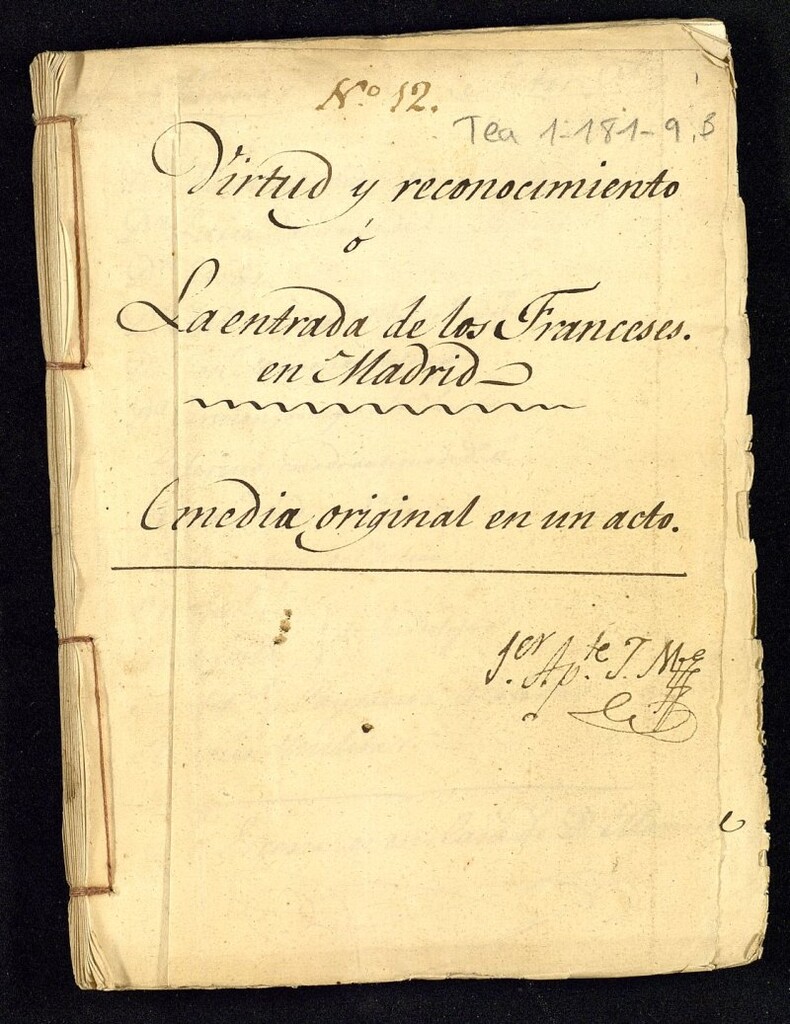 Nº 12.
Tea 1-181-9, B
Virtud y reconocimiento
ó
La entrada de los Franceses.
en Madrid
Comedia original en un acto.
1.er Ap.te